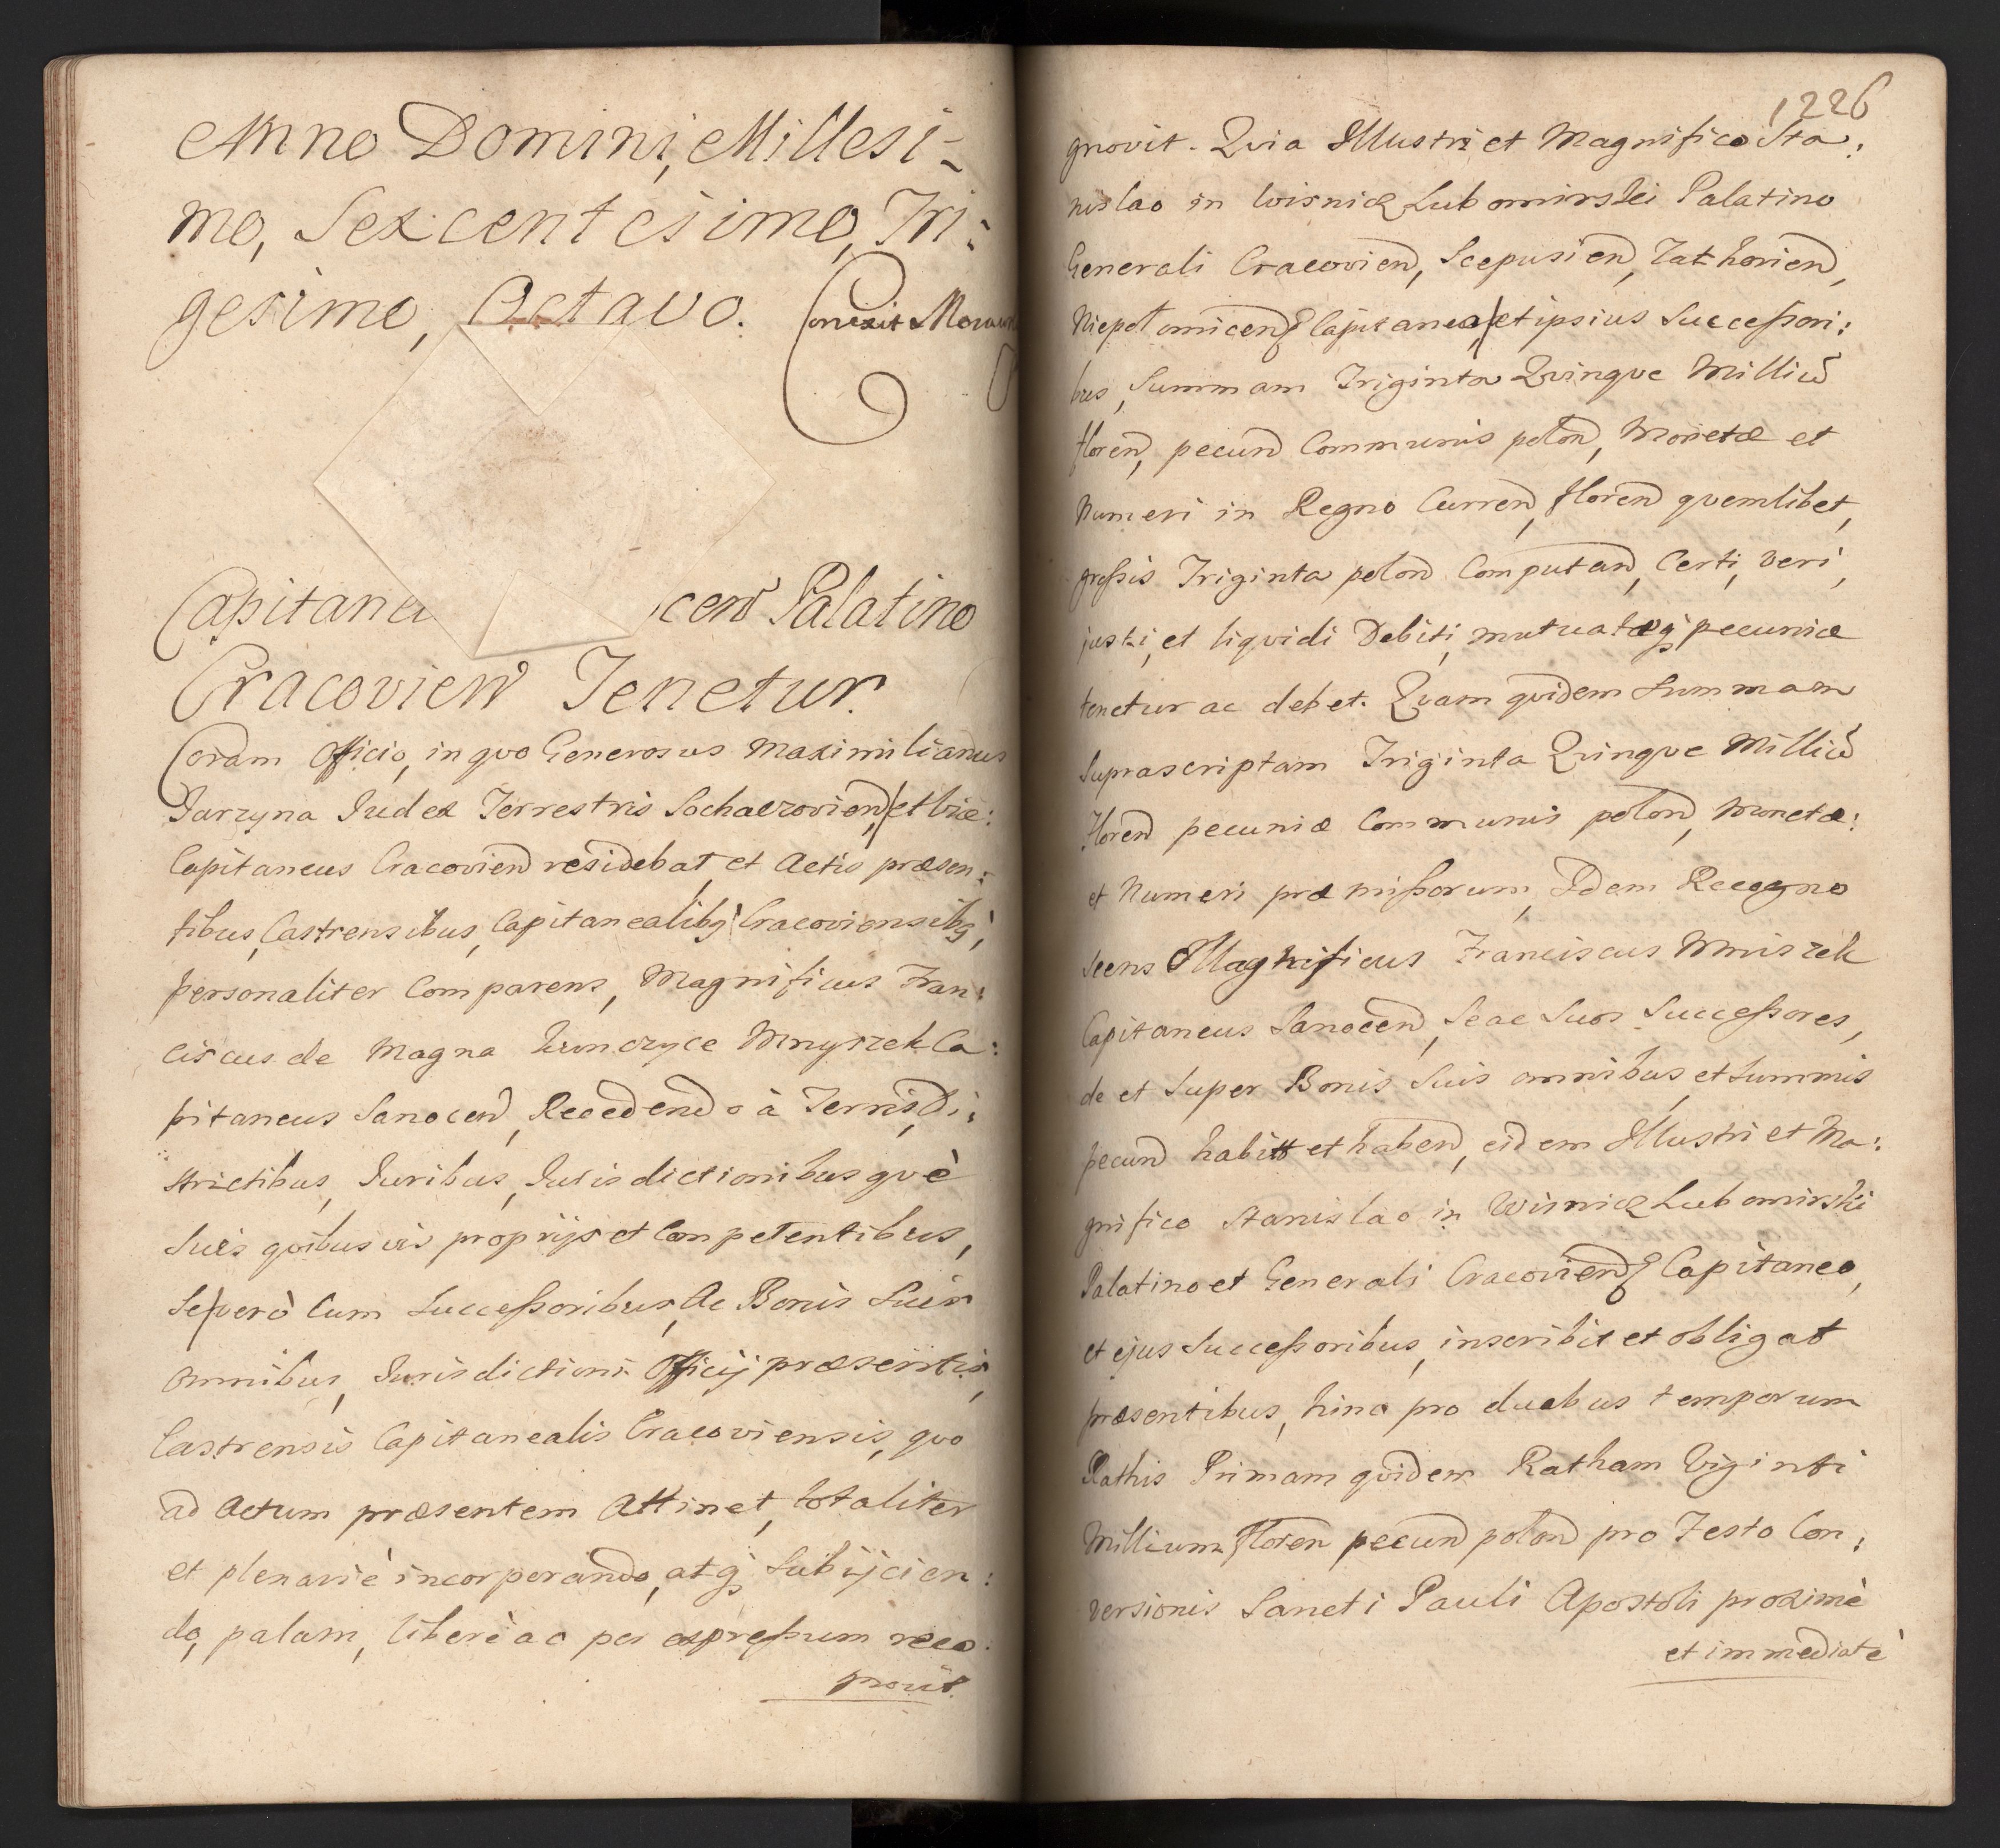 Anno Domini, Millesi-
mo, Sexcentesimo, Tri:
gesimo, Octavo.
Conexit
Capitane cen̄ Palatino
Cracovien̄ Tenetur.
Coram Officio, in qvo Generosus Maximilianus
Jarzyna Judex Terrestris Sochaczovien̄, et Vice:
Capitaneus Cracovien̄ residebat, et Actis præsen:
tibus, Castrensibus, Capitanealibq Cracoviensibq,
personaliter Comparens, Magnificus Fran:
ciscus de Magna Kunczyce Mnyszek Ca:
pitaneus Sanocen̄, Recedendo à Terris, Di:
strictibus, Juribus, Jurisdictionibusqvè
Suis qvibusvis proprijs et Competentibus,
Se verò Cum Successoribus, Ac Bonis Suis
omnibus, Jurisdictioni Officij præsentis,
Castrensis Capitanealis Cracoviensis, qvo
ad Actum præsentem Attinet, totaliter
et plenariè incorporando, atq Subijcien:
do, palam, liberè ac per expressum reco.
gnovit.
1226
gnovit. Qvia Illustri et Magnifico Sta:
nislao in Wisnicz Lubomirski Palatino
Generali Cracovien̄, Scepusien̄, Zathorien̄,
Niepolomicenq Capitaneo, et ipsius Successori:
bus, Summam Triginta Qvinqve Milliū
floren̄, pecun̄ Communis polon̄, Monetæ et
Numeri in Regno Curren̄, floren̄ qvemlibet,
grossis Triginta polon̄ Computan̄, Certi, veri,
justi, et liqvidi Debiti, mutuatæq pecuniæ
tenetur ac debet. Qvam qvidem Summam
Suprascriptam Triginta Qvinqve Milliū
Floren̄ pecuniæ Communis polon̄, Monetæ:
et Numeri præmissorum, Idem Recogno
scens Magnificus Franciscus Mniszek
Capitaneus Sanocen̄, Se ac Suos Successores,
de et Super Bonis Suis omnibus, et Summis
pecun̄ habitt et haben̄, eidem Illustri et Ma:
gnifico Stanislao in Wisnicz Lubomirski
Palatino et Generali Cracovienq Capitaneo,
et ejus Successoribus, inscribit et obligat
præsentibus, hinc pro duabus temporum
Rathis Primam qvidem Ratham Viginti
Millium floren̄ pecun̄ polon̄ pro Festo Con:
versionis Sancti Pauli Apostoli proximè
et immediatè